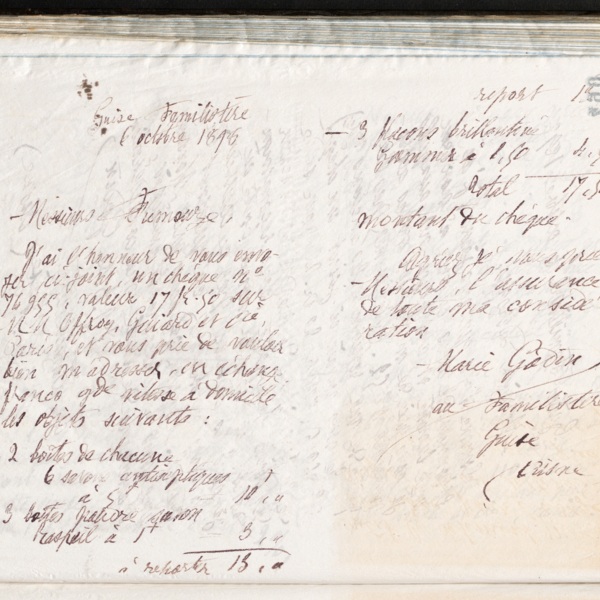 Guise Familistère
6 octobre 1898
Messieurs Fumouze,
J'ai l'honneur de vous envo-
yer ci-joint, un chèque n°
76955, valeur 17f.50 sur
M.M. Offroy, Guiard et Cie
Paris, et vous prie de vouloir
bien m'adresser, en échange
franco gde vitesse à domicile
les objets suivants :
2 boîtes de chacune
6 savon antiseptiques
à 5f 10 , "
3 boîtes poudre gason
raspail à 1f 3 , "
à reporter 13 , "
report 1
- 3 flacons brillantine
à 1,50 4,5
Total 17,5
montant du chèque.
Agréez,
Messieurs, l'assurance
de toute ma considé
ration
Marie Godin
au Familistère
Guise
Aisne